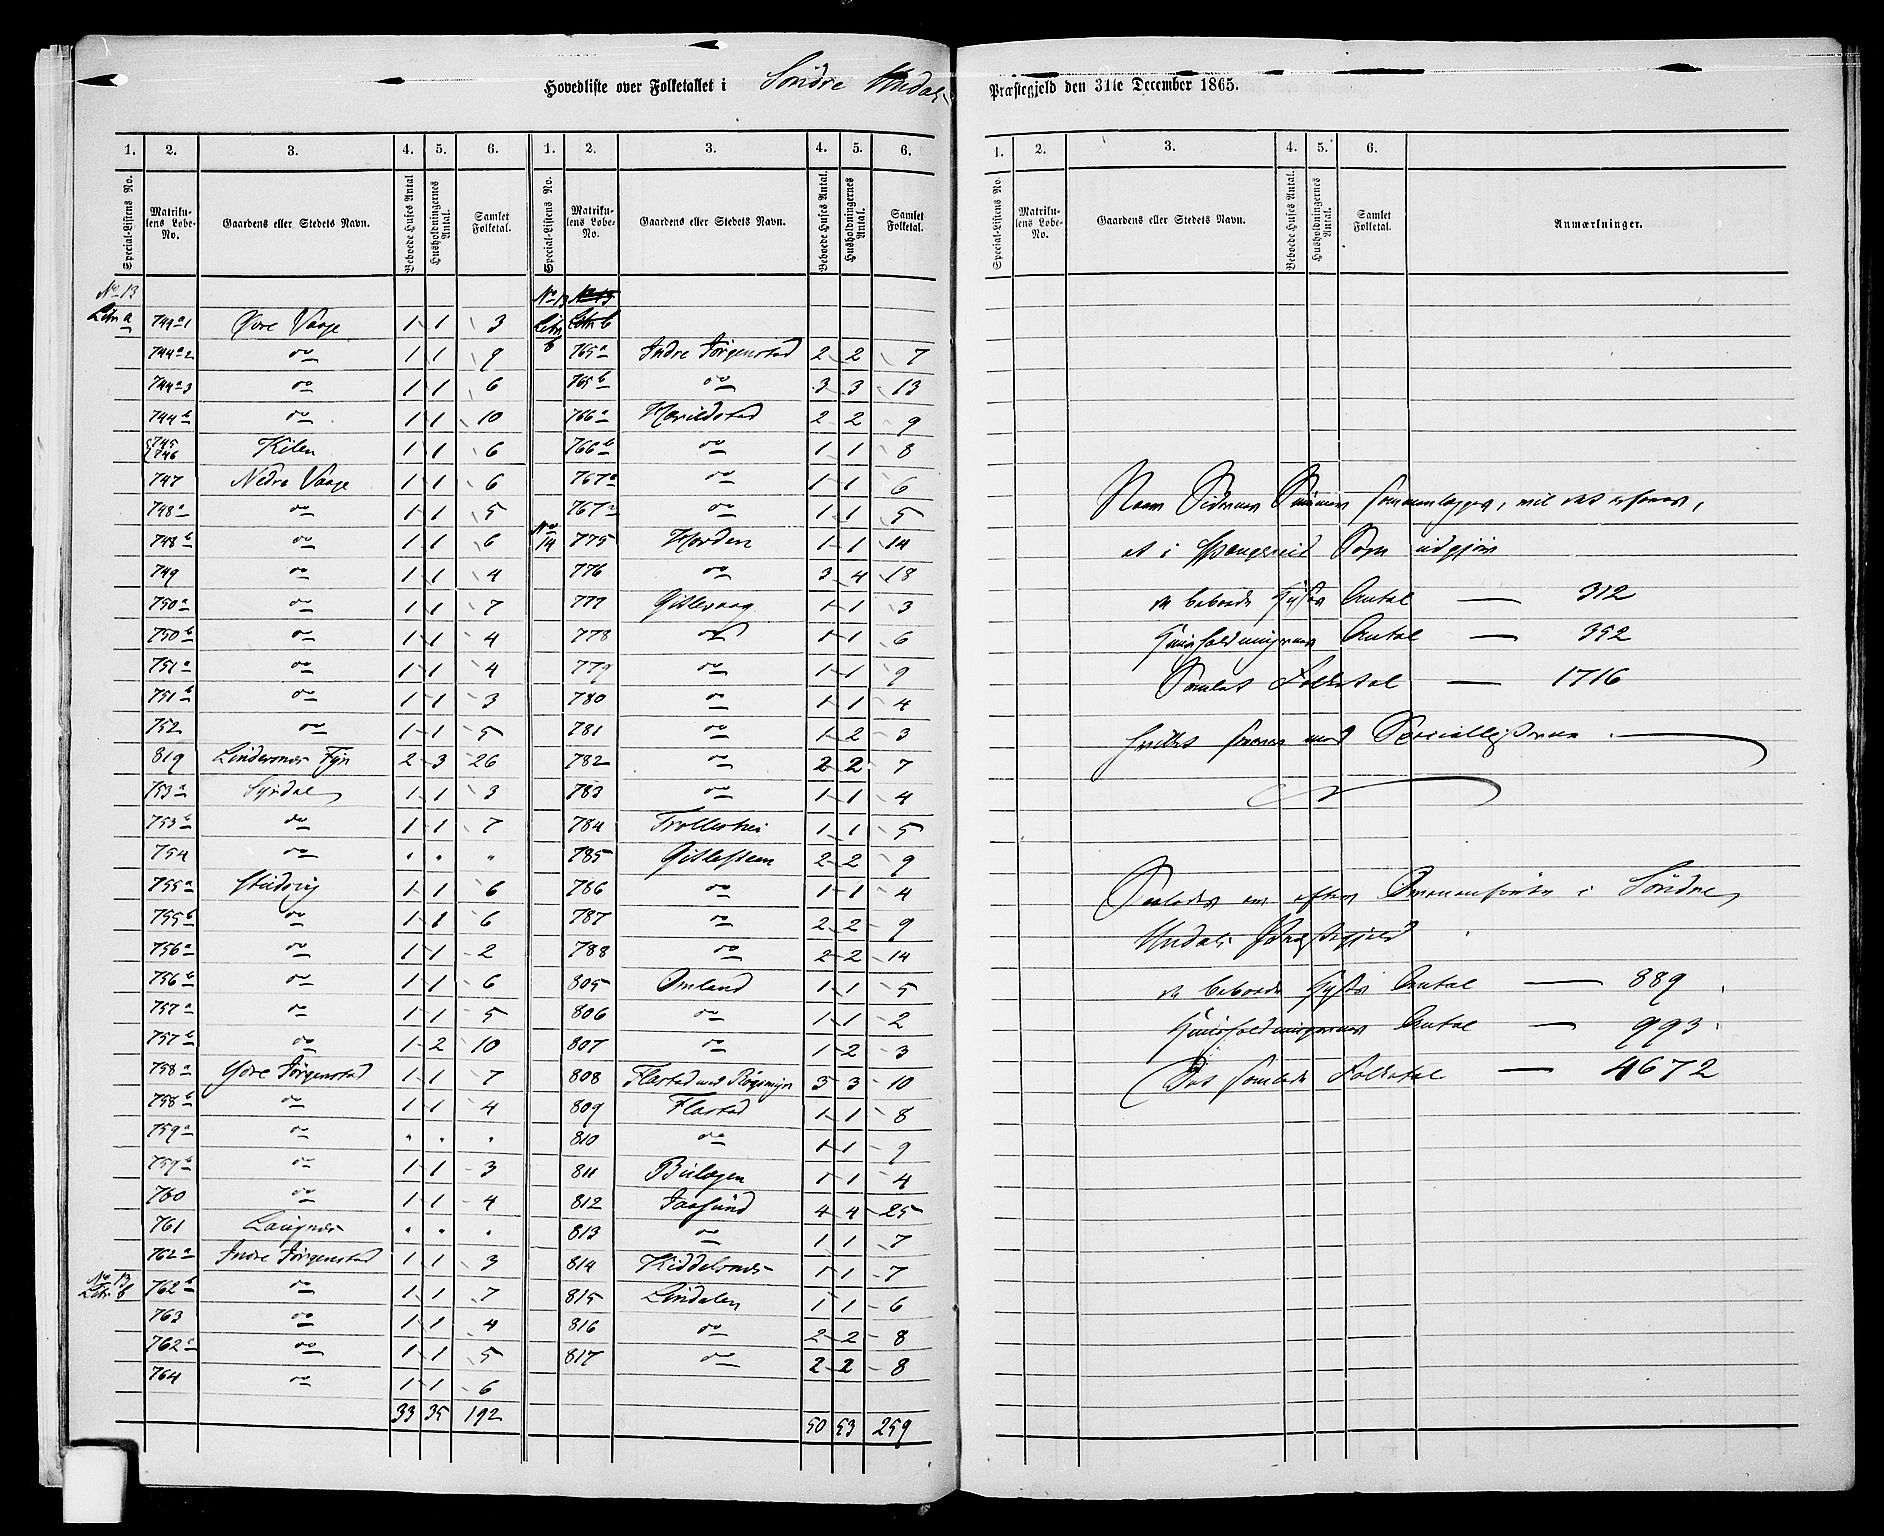 Hovedliste over Folketallet i Söndre Undals Præstegjeld den 31te December 1865.
1. 2. 3. 4. 5. 6. 1. 2. 3. 4. 5. 6.
Special-Listens No. Matrikulens Løbe-No. Gaardens eller Stedets Navn. Beboede Huses Antal Husholdningernes Antal. Samlet Folketal. Special-Listens No. Matrikulens Løbe-No. Gaardens eller Stedets Navn. Beboede Huses Antal. Husholdningernes Antal. Samlet Folketal.
No 13
Litr a 744a1 Ydre Vaage 1 1 3
744a2 do 1 1 9
744a3 do 1 1 6
744b do 1 1 10
745 746 Kilen 1 1 6
747 Nedre Vaage 1 1 6
748a do 1 1 5
748b do 1 1 6
749 do 1 1 4
750a do 1 1 7
750b do 1 1 4
751a do 1 1 4
751b do 1 1 3
752 do 1 1 5
819 Lindesnes Fyr 2 3 26
753a 1 1 3
753b do 1 1 7
754 do " " "
755a 1 1 6
755b do 1 1 6
756a do 1 1 2
756b do 1 1 6
757a do 1 1 5
757b do 1 2 10
758a Ydre Jörgenstad 1 1 7
758b do 1 1 4
759a do " " "
759b do 1 1 3
760 do 1 1 4
761 Langnes " " "
762a Indre Jörgenstad 1 1 3
No 13 Litr b 762b do 1 1 7
763 do 1 1 4
762c do 1 1 5
764 do 1 1 6
33 35 192
No 13 No 13
Litr b Litr b
765a Indre Jörgenstad 2 2 7
765b do 3 3 13
766a Hævildstad 2 2 9
766b do 1 1 8
767a do 1 1 6
767b do 1 1 5
No 14 775 1 1 14
776 do 3 4 18
777 Gitlevaag 1 1 3
778 do 1 1 6
779 do 1 1 9
780 do 1 1 4
781 do 1 2 3
782 do 2 2 7
783 do 1 1 4
784 Trollethei 1 1 5
785 Gitlesteen 2 2 9
786 do 1 1 4
787 do 2 2 9
788 do 2 2 14
805 Omland 1 1 5
806 do 1 1 2
807 do 1 2 3
808 Flastad med Rögemyr 3 3 10
809 Flastad 1 1 8
810 do 1 1 9
811 1 1 4
812 Jaasund 4 4 25
813 do 1 1 7
814 Kiddelsnes 1 1 7
815 Lindalen 1 1 6
816 do 2 2 8
817 do 2 2 8
50 53 259
1. 2. 3. 4. 5. 6.
Special-Listens No. Matrikulens Løbe-No. Gaardens eller Stedets Navn. Beboede Huses Antal. Husholdningernes Antal. Samlet Folketal. Anmærkninger.
Naar Sidernes Summer sammenlægges, vil det erfares,
at i Spangereid Sogn udgjør
de beboede Huses Antal — 312
Husholdningernes Antal — 352
Samlet Folketal — 1716
hvilket stemmer med Speciallisterne.
Saaledes er efter i Söndre
Undals Præstegjeld
de beboede Huses Antal — 889
Husholdningernes Antal — 993
Det samlede Folketal — 4672